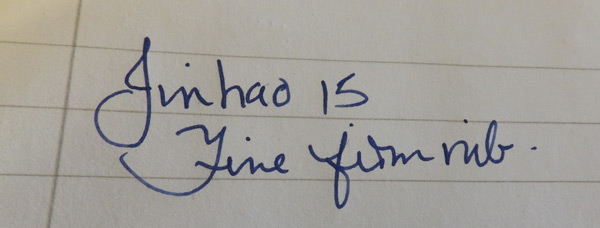 Jinhao 15
Fine firm nib.